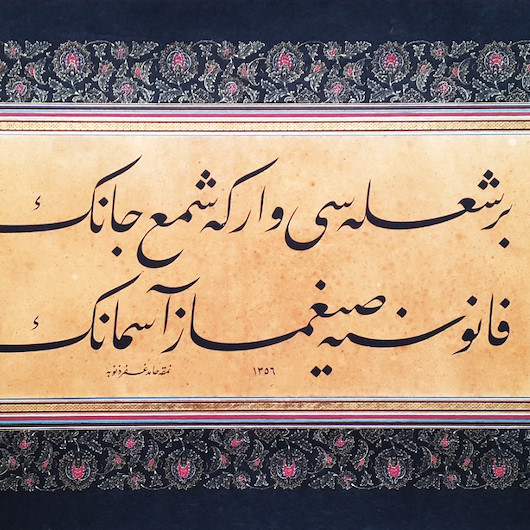 بر شعله سی وار كه شمع جانك
فانوسنه صیغماز آسمانك
١٣٥٦
نمقه حامد غفر ذنوبه